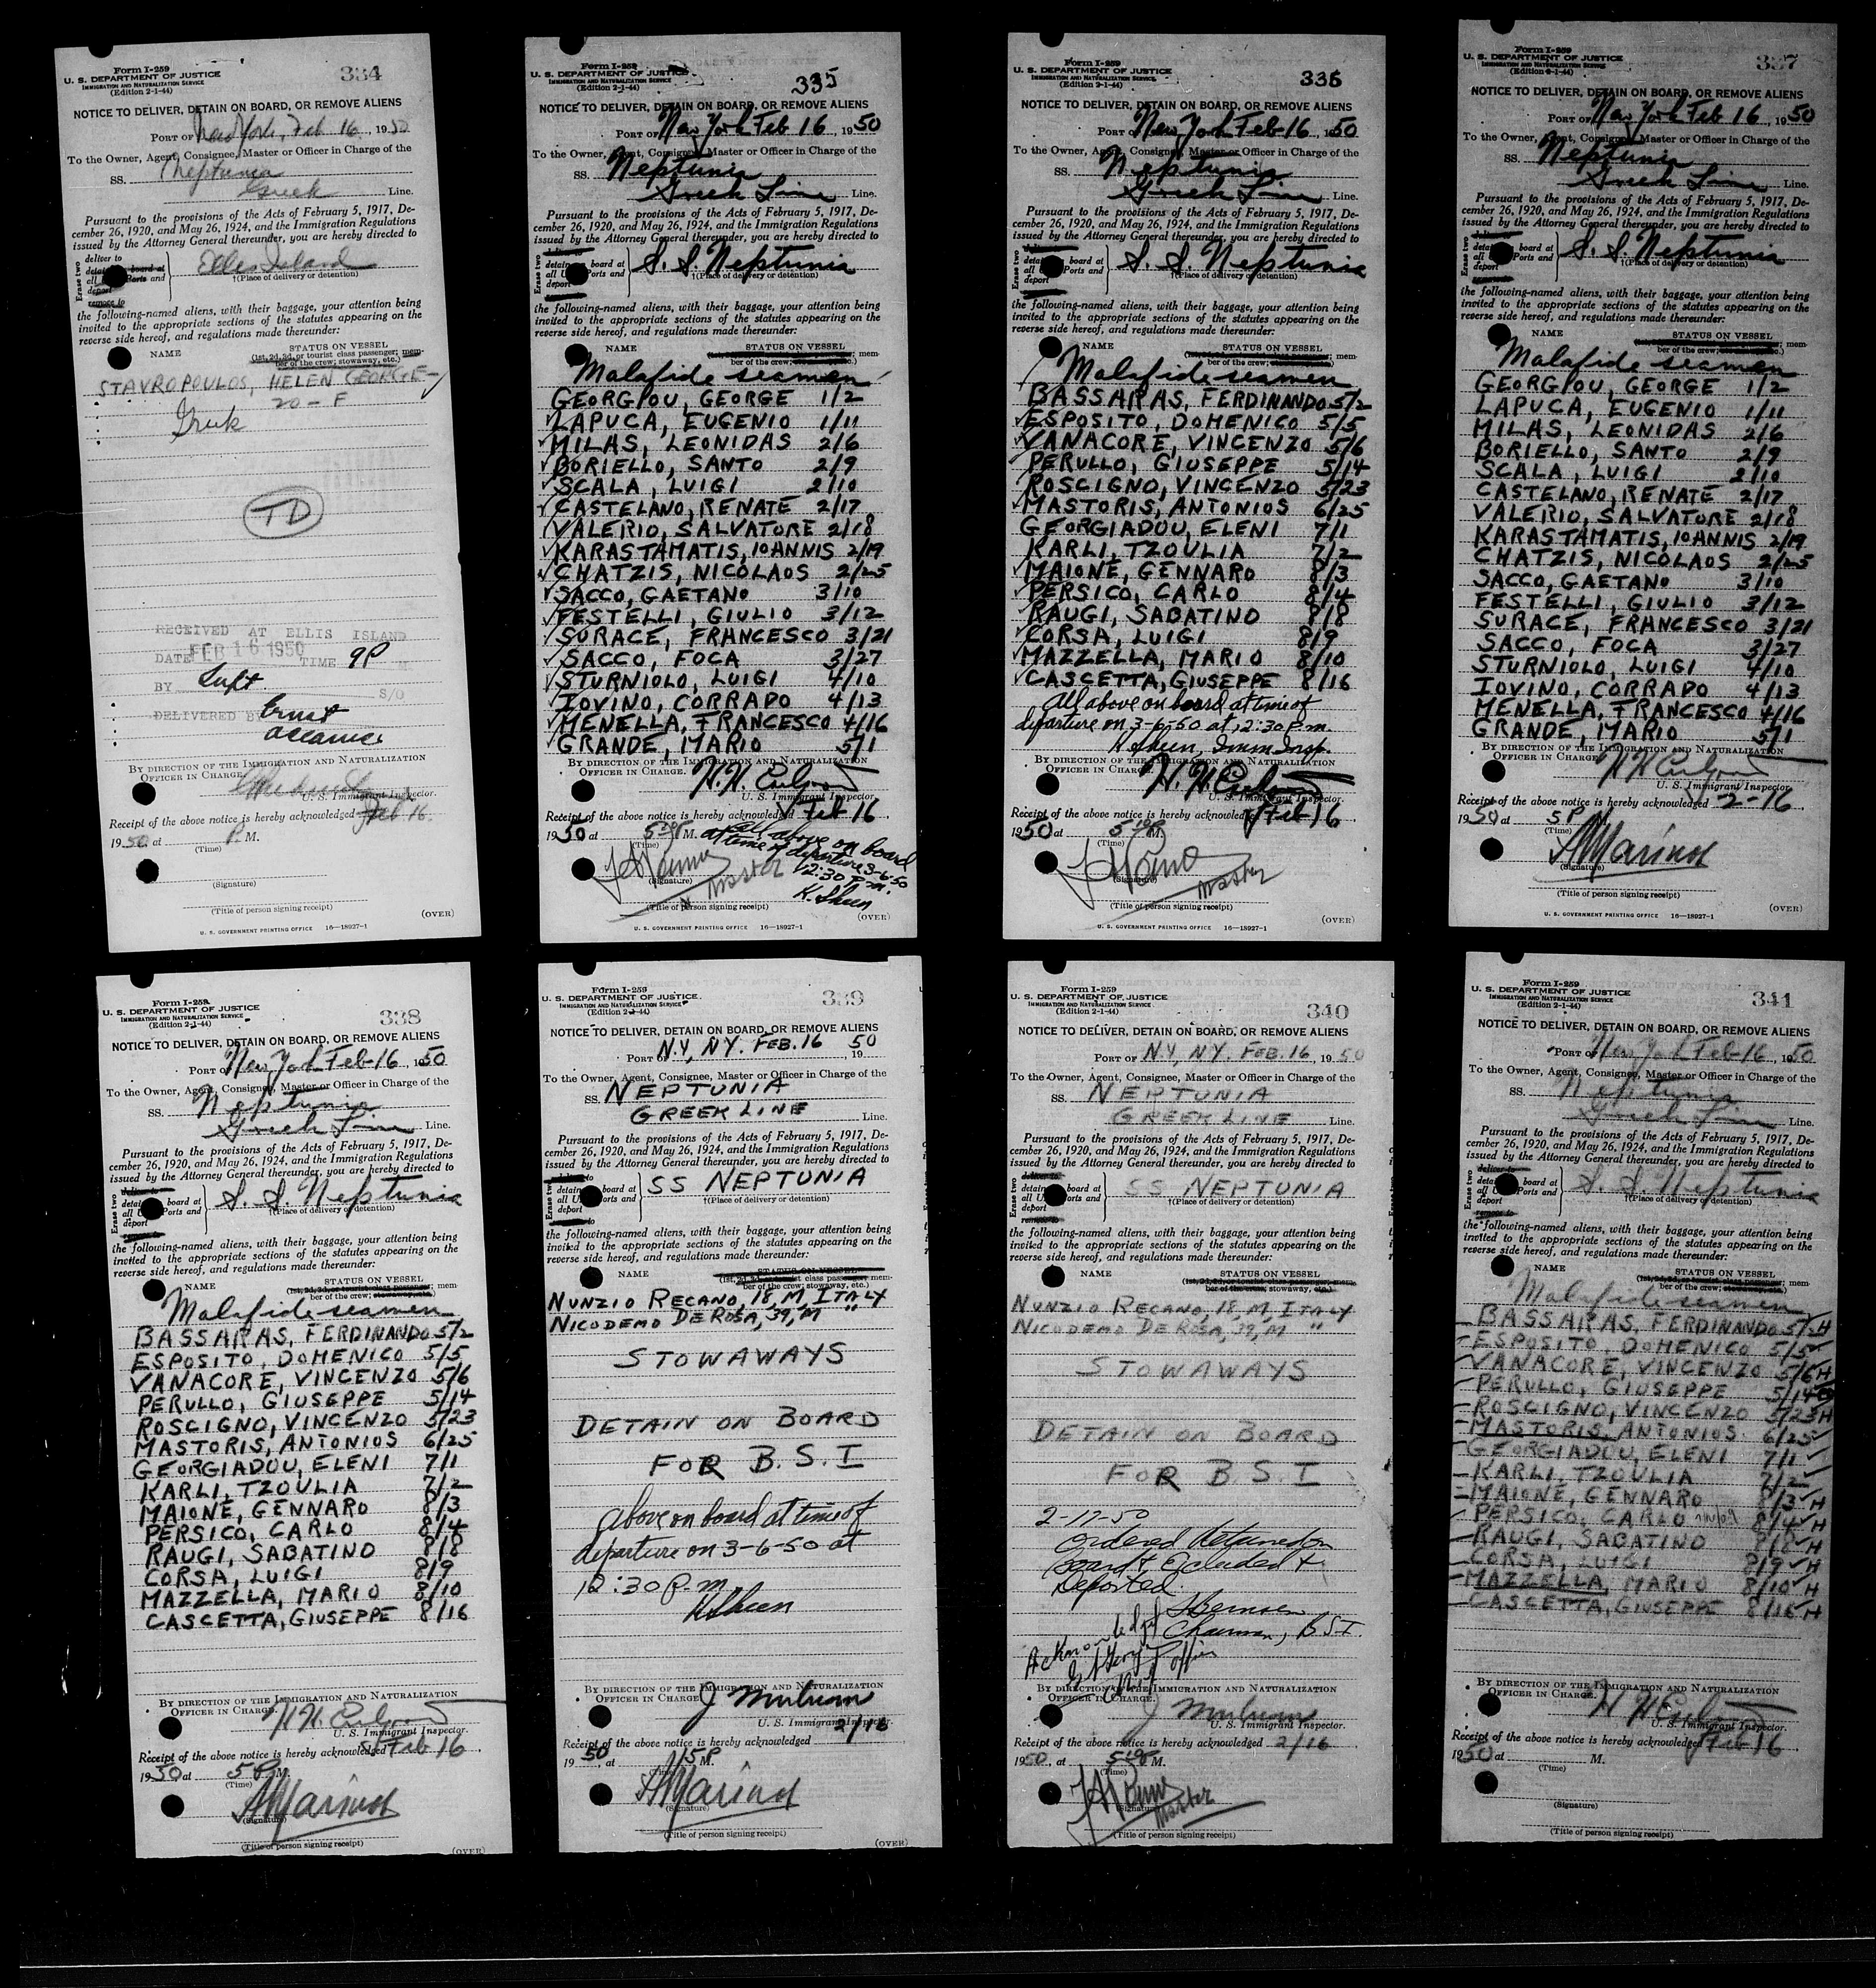 Form I-259
U. S. DEPARTMENT OF JUSTICE
IMMIGRATION AND NATURALIZATION SERVICE
(Edition 2-1-44)
334
NOTICE TO DELIVER, DETAIN ON BOARD, OR REMOVE ALIENS
PORT OF New York, Feb 16, 1950
To the Owner, Agent, Consignee, Master or Officer in Charge of the
SS. Neptunia
Greek Line.
Pursuant to the provisions of the Acts of February 5, 1917, De-
cember 26, 1920, and May 26, 1924, and the Immigration Regulations
issued by the Attorney General thereunder, you are hereby directed to
Erase two
deliver to
detain board at
all Ports and
deport
remove to
Ellis Island
†(Place of delivery or detention)
the following-named aliens, with their baggage, your attention being
invited to the appropriate sections of the statutes appearing on the
reverse side hereof, and regulations made thereunder:
NAME STATUS ON VESSEL
(1st, 2d, 3d, or tourist class passenger; mem-
ber of the crew; stowaway, etc.)
STAVROPOULOS, HELEN GEORGE-
20-F
Greek
TD
RECEIVED AT ELLIS ISLAND
DATE FEB 16 1950 TIME 9P M.
BY Supt.
S/O
DELIVERED BY Ernst
BY DIRECTION OF THE IMMIGRATION AND NATURALIZATION
OFFICER IN CHARGE.
U. S. Immigrant Inspector.
Receipt of the above notice is hereby acknowledged Feb 16.
1950 at P. M.
(Time)
(Signature)
(Title of person signing receipt)
(OVER)
U. S. GOVERNMENT PRINTING OFFICE 16—18927-1
Form I-259
U. S. DEPARTMENT OF JUSTICE
IMMIGRATION AND NATURALIZATION SERVICE
(Edition 2-1-44)
335
NOTICE TO DELIVER, DETAIN ON BOARD, OR REMOVE ALIENS
PORT OF New York Feb 16 1950
To the Owner, Agent, Consignee, Master or Officer in Charge of the
SS. Neptunia
Greek Line Line.
Pursuant to the provisions of the Acts of February 5, 1917, De-
cember 26, 1920, and May 26, 1924, and the Immigration Regulations
issued by the Attorney General thereunder, you are hereby directed to
Erase two
detain board at
all U Ports and
deport
S. S. Neptunia
†(Place of delivery or detention)
the following-named aliens, with their baggage, your attention being
invited to the appropriate sections of the statutes appearing on the
reverse side hereof, and regulations made thereunder:
NAME STATUS ON VESSEL
mem-
ber of the crew;
Malafide seamen
GEORGIOU, GEORGE 1/2
LAPUCA, EUGENIO 1/11
MILAS, LEONIDAS 2/6
BORIELLO, SANTO 2/9
SCALA, LUIGI 2/10
CASTELANO, RENATE 2/17
VALERIO, SALVATORE 2/18
KARASTAMATIS, IOANNIS 2/19
CHATZIS, NICOLAOS 2/25
SACCO, GAETANO 3/10
FESTELLI, GIULIO 3/12
SURACE, FRANCESCO 3/21
SACCO, FOCA 3/27
STURNIOLO, LUIGI 4/10
IOVINO, CORRADO 4/13
MENELLA, FRANCESCO 4/16
GRANDE, MARIO 5/1
BY DIRECTION OF THE IMMIGRATION AND NATURALIZATION
OFFICER IN CHARGE.
U. S. Immigrant Inspector.
Receipt of the above notice is hereby acknowledged Feb 16
1950 at 5 M.
(Time)
all above on board
at time of departure 3-6-50
12:30 P.m.
K. Sheen
Master
(Signature)
(Title of person signing receipt)
(OVER)
U. S. GOVERNMENT PRINTING OFFICE 16—18927-1
Form I-259
U. S. DEPARTMENT OF JUSTICE
IMMIGRATION AND NATURALIZATION SERVICE
(Edition 2-1-44)
336
NOTICE TO DELIVER, DETAIN ON BOARD, OR REMOVE ALIENS
PORT OF New York Feb 16 1950
To the Owner, Agent, Consignee, Master or Officer in Charge of the
SS. Neptunia
Greek Line Line.
Pursuant to the provisions of the Acts of February 5, 1917, De-
cember 26, 1920, and May 26, 1924, and the Immigration Regulations
issued by the Attorney General thereunder, you are hereby directed to
Erase two
detain board at
all U Ports and
deport
S. S. Neptunia
†(Place of delivery or detention)
the following-named aliens, with their baggage, your attention being
invited to the appropriate sections of the statutes appearing on the
reverse side hereof, and regulations made thereunder:
NAME STATUS ON VESSEL
mem-
ber of the crew;
Malafide seamen
BASSARAS, FERDINANDO 5/2
ESPOSITO, DOMENICO 5/5
VANACORE, VINCENZO 5/6
PERULLO, GIUSEPPE 5/14
ROSCIGNO, VINCENZO 5/23
MASTORIS, ANTONIOS 6/25
GEORGIADOU, ELENI 7/1
KARLI, TZOULIA 7/2
MAIONE, GENNARO 8/3
PERSICO, CARLO 8/4
RAUGI, SABATINO 8/8
CORSA, LUIGI 8/9
MAZZELLA, MARIO 8/10
CASCETTA, GIUSEPPE 8/16
All above on board at time of
departure on 3-6-50 at 12:30 p.m.
K Sheen, Imm Insp.
BY DIRECTION OF THE IMMIGRATION AND NATURALIZATION
OFFICER IN CHARGE.
U. S. Immigrant Inspector.
Receipt of the above notice is hereby acknowledged Feb 16
1950 at 5 M.
(Time)
(Signature)
Master
(Title of person signing receipt)
(OVER)
U. S. GOVERNMENT PRINTING OFFICE 16—18927-1
Form I-259
U. S. DEPARTMENT OF JUSTICE
IMMIGRATION AND NATURALIZATION SERVICE
(Edition 2-1-44)
337
NOTICE TO DELIVER, DETAIN ON BOARD, OR REMOVE ALIENS
PORT OF New York Feb 16, 1950
To the Owner, Agent, Consignee, Master or Officer in Charge of the
SS. Neptunia
Greek Line Line.
Pursuant to the provisions of the Acts of February 5, 1917, De-
cember 26, 1920, and May 26, 1924, and the Immigration Regulations
issued by the Attorney General thereunder, you are hereby directed to
Erase two
detain board at
all U Ports and
deport
S. S. Neptunia
†(Place of delivery or detention)
the following-named aliens, with their baggage, your attention being
invited to the appropriate sections of the statutes appearing on the
reverse side hereof, and regulations made thereunder:
NAME STATUS ON VESSEL
mem-
ber of the crew;
Malafide seamen
GEORGIOU, GEORGE 1/2
LAPUCA, EUGENIO 1/11
MILAS, LEONIDAS 2/6
BORIELLO, SANTO 2/9
SCALA, LUIGI 2/10
CASTELANO, RENATE 2/17
VALERIO, SALVATORE 2/18
KARASTAMATIS, IOANNIS 2/19
CHATZIS, NICOLAOS 2/25
SACCO, GAETANO 3/10
FESTELLI, GIULIO 3/12
SURACE, FRANCESCO 3/21
SACCO, FOCA 3/27
STURNIOLO, LUIGI 4/10
IOVINO, CORRADO 4/13
MENELLA, FRANCESCO 4/16
GRANDE, MARIO 5/1
BY DIRECTION OF THE IMMIGRATION AND NATURALIZATION
OFFICER IN CHARGE
U. S. Immigrant Inspector
Receipt of the above notice is hereby acknowledged 2-16
1950 at 5 P M.
(Time)
(Signature)
(Title of person signing receipt)
(OVER)
U. S. GOVERNMENT PRINTING OFFICE 16—18927-1
Form I-259
U. S. DEPARTMENT OF JUSTICE
IMMIGRATION AND NATURALIZATION SERVICE
(Edition 2-1-44)
338
NOTICE TO DELIVER, DETAIN ON BOARD, OR REMOVE ALIENS
PORT OF New York Feb 16 1950
To the Owner, Agent, Consignee, Master or Officer in Charge of the
SS. Neptunia
Greek Line Line.
Pursuant to the provisions of the Acts of February 5, 1917, De-
cember 26, 1920, and May 26, 1924, and the Immigration Regulations
issued by the Attorney General thereunder, you are hereby directed to
Erase two
deliver to
detain board at
all U Ports and
deport
S. S. Neptunia
†(Place of delivery or detention)
the following-named aliens, with their baggage, your attention being
invited to the appropriate sections of the statutes appearing on the
reverse side hereof, and regulations made thereunder:
NAME STATUS ON VESSEL
(1st, 2d, 3d, or tourist class passenger; mem-
ber of the crew; stowaway, etc.)
Malafide seamen
BASSARAS, FERDINANDO 5/2
ESPOSITO, DOMENICO 5/5
VANACORE, VINCENZO 5/6
PERULLO, GIUSEPPE 5/14
ROSCIGNO, VINCENZO 5/23
MASTORIS, ANTONIOS 6/25
GEORGIADOU, ELENI 7/1
KARLI, TZOULIA 7/2
MAIONE, GENNARO 8/3
PERSICO, CARLO 8/4
RAUGI, SABATINO 8/8
CORSA, LUIGI 8/9
MAZZELLA, MARIO 8/10
CASCETTA, GIUSEPPE 8/16
BY DIRECTION OF THE IMMIGRATION AND NATURALIZATION
OFFICER IN CHARGE.
U. S. Immigrant Inspector.
Receipt of the above notice is hereby acknowledged Feb 16
1950 at 5 P M.
(Time)
(Signature)
(Title of person signing receipt)
(OVER)
Form I-259
U. S. DEPARTMENT OF JUSTICE
IMMIGRATION AND NATURALIZATION SERVICE
(Edition 2-1-44)
339
NOTICE TO DELIVER, DETAIN ON BOARD, OR REMOVE ALIENS
PORT OF N.Y, NY. FEB. 16 1950
To the Owner, Agent, Consignee, Master or Officer in Charge of the
SS. NEPTUNIA
GREEK LINE Line.
Pursuant to the provisions of the Acts of February 5, 1917, De-
cember 26, 1920, and May 26, 1924, and the Immigration Regulations
issued by the Attorney General thereunder, you are hereby directed to
Erase two
detain board at
all U Ports and
deport
SS NEPTUNIA
†(Place of delivery or detention)
the following-named aliens, with their baggage, your attention being
invited to the appropriate sections of the statutes appearing on the
reverse side hereof, and regulations made thereunder:
NAME STATUS ON VESSEL
(1st, 2d, 3d, or tourist class passenger mem-
ber of the crew; stowaway, etc.)
NUNZIO RECANO, 18, M, ITALY
NICODEMO DE ROSA, 39, M "
STOWAWAYS
DETAIN ON BOARD
FOR B. S. I
above on board at time of
departure on 3-6-50 at
12:30 P.m.
K Sheen
BY DIRECTION OF THE IMMIGRATION AND NATURALIZATION
OFFICER IN CHARGE.
U. S. Immigrant Inspector.
Receipt of the above notice is hereby acknowledged 2/16
1950, at 5P M.
(Signature)
(Title of person signing receipt)
(OVER)
Form I-259
U. S. DEPARTMENT OF JUSTICE
IMMIGRATION AND NATURALIZATION SERVICE
(Edition 2-1-44)
340
NOTICE TO DELIVER, DETAIN ON BOARD, OR REMOVE ALIENS
PORT OF N.Y, NY. FEB. 16, 1950
To the Owner, Agent, Consignee, Master or Officer in Charge of the
SS. NEPTUNIA
GREEK LINE Line.
Pursuant to the provisions of the Acts of February 5, 1917, De-
cember 26, 1920, and May 26, 1924, and the Immigration Regulations
issued by the Attorney General thereunder, you are hereby directed to
Erase two
deliver to
detain board at
all U Ports and
deport
remove to
SS NEPTUNIA
†(Place of delivery or detention)
the following-named aliens, with their baggage, your attention being
invited to the appropriate sections of the statutes appearing on the
reverse side hereof, and regulations made thereunder:
NAME STATUS ON VESSEL
(1st, 2d, 3d, or tourist class passenger; mem-
ber of the crew; stowaway, etc.)
NUNZIO RECANO, 18, M, ITALY
NICODEMO DE ROSA, 39, M "
STOWAWAYS
DETAIN ON BOARD
FOR B. S. I
2-17-50
Ordered detained on
board & Excluded &
Deported.
Chairman, B S I.
Acknowledged
Chief officer
BY DIRECTION OF THE IMMIGRATION AND NATURALIZATION
OFFICER IN CHARGE.
U. S. Immigrant Inspector.
Receipt of the above notice is hereby acknowledged 2/16
1950, at 5 M.
(Time)
(Signature)
Master
(Title of person signing receipt)
Form I-259
U. S. DEPARTMENT OF JUSTICE
IMMIGRATION AND NATURALIZATION SERVICE
(Edition 2-1-44)
341
NOTICE TO DELIVER, DETAIN ON BOARD, OR REMOVE ALIENS
PORT OF New York Feb 16, 1950
To the Owner, Agent, Consignee, Master or Officer in Charge of the
SS. Neptunia
Greek Line Line.
Pursuant to the provisions of the Acts of February 5, 1917, De-
cember 26, 1920, and May 26, 1924, and the Immigration Regulations
issued by the Attorney General thereunder, you are hereby directed to
Erase two
deliver to
detain board at
all U Ports and
deport
S. S. Neptunia
†(Place of delivery or detention)
the following-named aliens, with their baggage, your attention being
invited to the appropriate sections of the statutes appearing on the
reverse side hereof, and regulations made thereunder:
NAME STATUS ON VESSEL
(1st, 2d, 3d, or tourist class passenger; mem-
ber of the crew; stowaway, etc.)
Malafide seamen
BASSARAS, FERDINANDO 5/2 H
ESPOSITO, DOMENICO 5/5
VANACORE, VINCENZO 5/6 H
PERULLO, GIUSEPPE 5/14
ROSCIGNO, VINCENZO 5/23 H
MASTORIS, ANTONIOS 6/25
GEORGIADOU, ELENI 7/1
KARLI, TZOULIA 7/2
MAIONE, GENNARO 8/3 H
PERSICO, CARLO 8/4 H
RAUGI, SABATINO 8/8 H
CORSA, LUIGI 8/9 H
MAZZELLA, MARIO 8/10 H
CASCETTA, GIUSEPPE 8/16 H
BY DIRECTION OF THE IMMIGRATION AND NATURALIZATION
OFFICER IN CHARGE.
U. S. Immigrant Inspector.
Receipt of the above notice is hereby acknowledged Feb 16
1950 at M.
(Time)
(Signature)
(Title of person signing receipt)